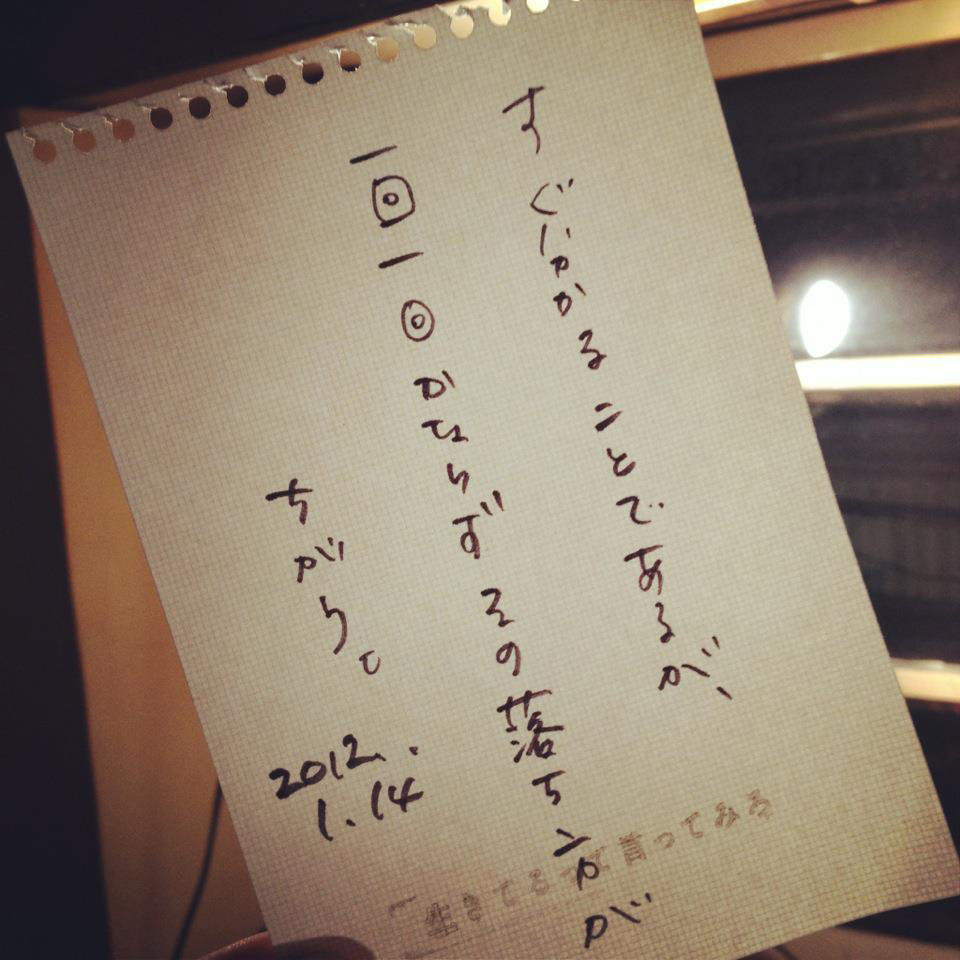 すぐわかることであるが、
一回一回かならずその落ち方が
ちがう。
2012.
1.14
「生きてるって言ってみろ